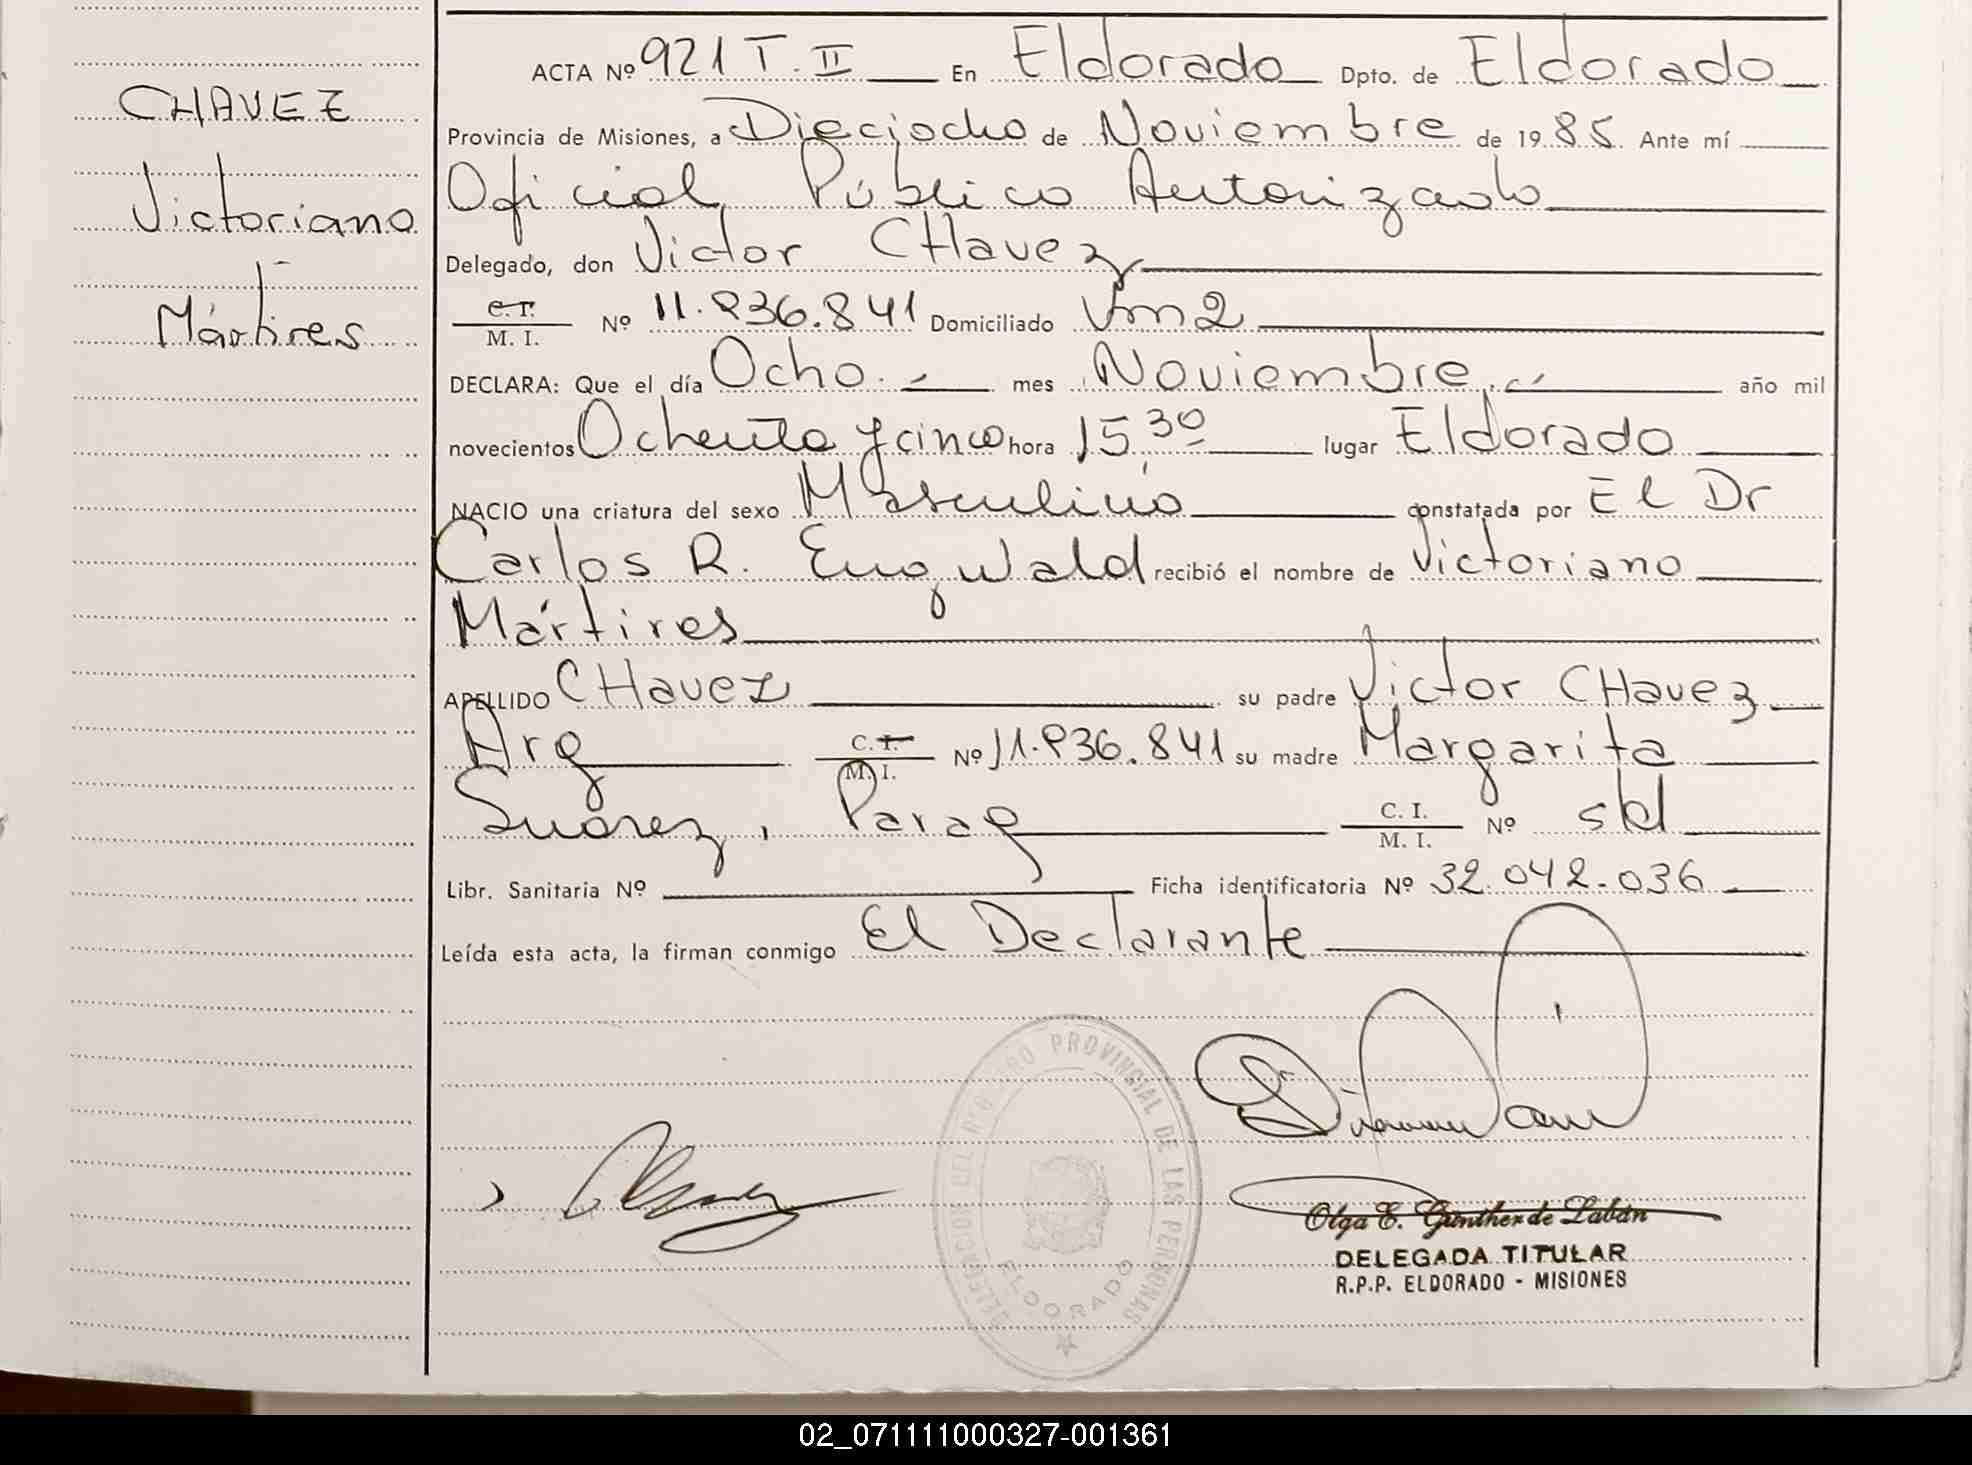 CHAVEZ
Victoriano
Mártires
ACTA Nº 921 T. II En Eldorado Dpto. de Eldorado
Provincia de Misiones, a Dieciocho de Noviembre de 1985. Ante mí
Oficial Público Autorizado
Delegado, don Victor CHavez
C.I. M. I. Nº 11.936.841 Domiciliado Km2
DECLARA: Que el día Ocho.- mes Noviembre.- año mil
novecientos Ochenta y cinco hora 15,30 lugar Eldorado
NACIO una criatura del sexo Masculino constatada por El Dr
Carlos R. Engwald recibió el nombre de Victoriano
Mártires
APELLIDO CHavez su padre Victor CHavez
Arg C.I. M. I. Nº 11.936.841 su madre Margarita
Suárez, Parag C. I. M. I. Nº s/d
Libr. Sanitaria Nº Ficha identificatoria Nº 32.042.036
Leída esta acta, la firman conmigo El Declarante
DELEGACION DEL REGISTRO PROVINCIAL DE LAS PERSONAS
ELDORADO
Olga E. Günther de Labán
DELEGADA TITULAR
R.P.P. ELDORADO - MISIONES
02_071111000327-001361